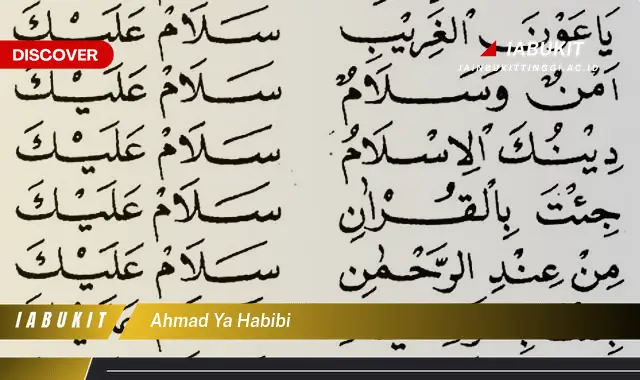 يَاعَوْنَ الْغَرِيْبِ سَلَامٌ عَلَيْكَ
IABUKIT
IAINBUKITTINGGI.AC.ID
DISCOVER
اَمْنٌ وَسَلَامٌ سَلَامٌ عَلَيْكَ
دِيْنُكَ الْاِسْلَامُ سَلَامٌ عَلَيْكَ
جِئْتَ بِالْقُرْاٰنِ سَلَامٌ عَلَيْكَ
مِنْ عِنْدِ الرَّحْمٰنِ سَلَامٌ عَلَيْكَ
IABUKIT
Ahmad Ya Habibi